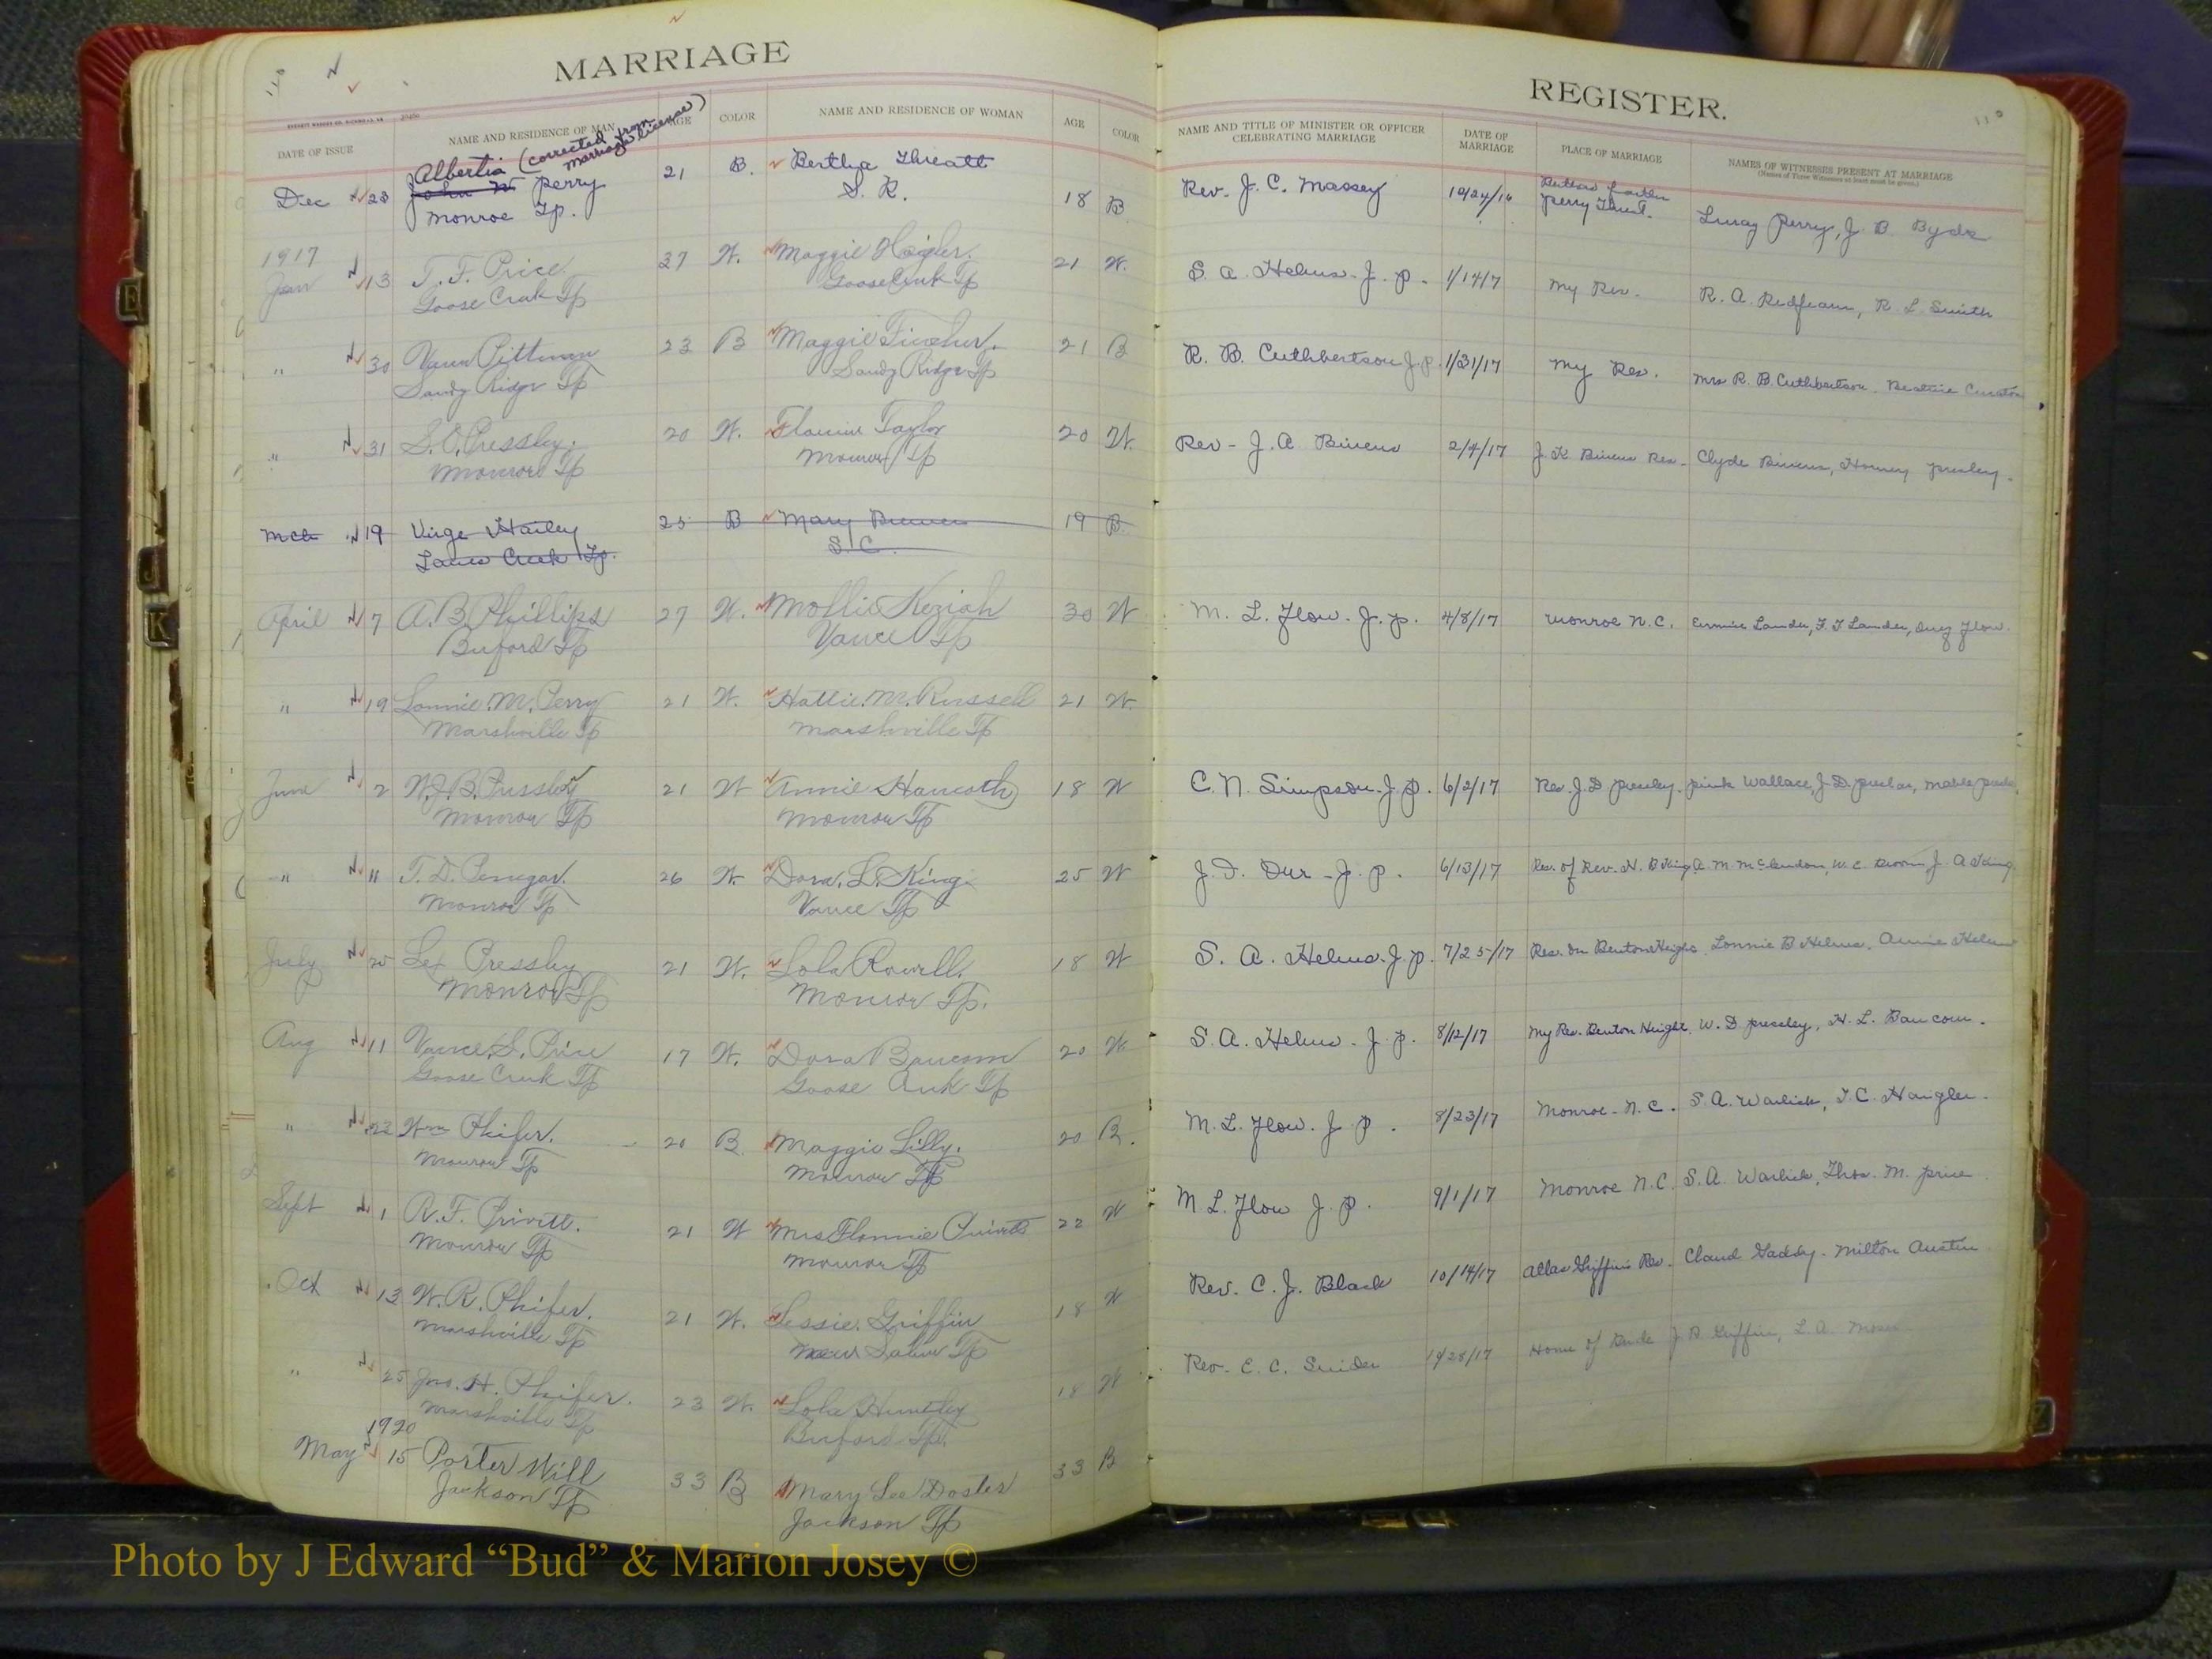 MARRIAGE
DATE OF ISSUE NAME AND RESIDENCE OF MAN AGE COLOR NAME AND RESIDENCE OF WOMAN AGE COLOR
Albertia (corrected from marriage license)
Dec 23 John W Perry 21 B. Bertha Threatt 18 B
Monroe Tp. S. R.
1917
Jan 13 T. F. Price 27 W. Maggie Haigler. 21 W.
Goose Creek Tp Goose Creek Tp
" 30 Vann Pittman 23 B Maggie Fincher. 21 B
Sandy Ridge Tp Sandy Ridge Tp
" 31 S. C. Pressley. 20 W. Taylor 20 W.
Monroe Tp Monroe Tp
Mch 19 Virge Hailey 25 B Mary 19 B.
Lanes Creek Tp. S. C.
April 7 A. B. Phillips 27 W. Mollie Keziah 30 W
Buford Tp Vance Tp
" 19 Lonnie M. Perry 21 W. Hattie M. Russell 21 W.
Marshville Tp Marshville Tp
June 2 W. J. B. Pressley 21 W Annie 18 W
Monroe Tp Monroe Tp
" 11 T. D. Penegar. 26 W. Dora L. King 25 W
Monroe Tp Vance Tp
July 25 Lex Pressley 21 W. Lola Rowell. 18 W
Monroe Tp Monroe Tp.
Aug 11 Vance S. Price 17 W. Dora Baucom 20 W.
Goose Creek Tp Goose Creek Tp
" 22 Wm Phifer. 20 B Maggie Lilly. 20 B.
Monroe Tp Monroe Tp
Sept 1 R. F. Privett. 21 W Mrs Flonnie Privett 22 W
Monroe Tp Monroe Tp
Oct 13 W. R. Phifer. 21 W. Lessie Griffin 18 W
Marshville Tp New Salem Tp
" 25 Jno. H. Phifer. 23 W. Lola Huntley 18 W
Marshville Tp Buford Tp.
1920
May 15 Porter Will 33 B Mary Lee Doster 33 B
Jackson Tp Jackson Tp
REGISTER.
110
NAME AND TITLE OF MINISTER OR OFFICER CELEBRATING MARRIAGE DATE OF MARRIAGE PLACE OF MARRIAGE NAMES OF WITNESSES PRESENT AT MARRIAGE
(Names of Three Witnesses at least must be given.)
Rev. J. C. Massey Perry, J. B.
S. A. Helms - J. P. - 1/14/7 My Res. R. A. Redfearn, R. L. Smith
R. B. Cuthbertson J. P. 1/31/17 My Res. Mrs R. B. Cuthbertson
Rev - J. A. Bivens 2/4/17 J. K Bivens Res - Clyde Bivens, Presley.
M. L. Flow. J. P. 4/8/17 Monroe N. C. Flow.
C. N. Simpson. J. P. 6/2/17 Res. J. D Presley. Wallace, J. D.
J. P. 6/13/17 Res. of Rev. King A. M. McLendon, W. C. J. A King
S. A. Helms. J. P. 7/25/17 Res. on Benton Heights Lonnie B Helms. Annie Helms
S. A. Helms - J. P. 8/12/17 My Res. Benton Height. W. D Pressley, H. L. Baucom.
M. L. Flow. J P. 8/23/17 Monroe - N. C. S. A. Warlick, T. C. Haigler.
M. L. Flow J. P. 9/1/17 Monroe N. C. S. A. Warlick, Thos. M. Price
Rev. C. J. Black 10/14/17 Griffin's Res. Claud Gaddy - Milton Austin
Rev. E. C. Snider 10/28/17 Home of Bride J B Griffin, L. A. Moser
Photo by J Edward “Bud” & Marion Josey ©